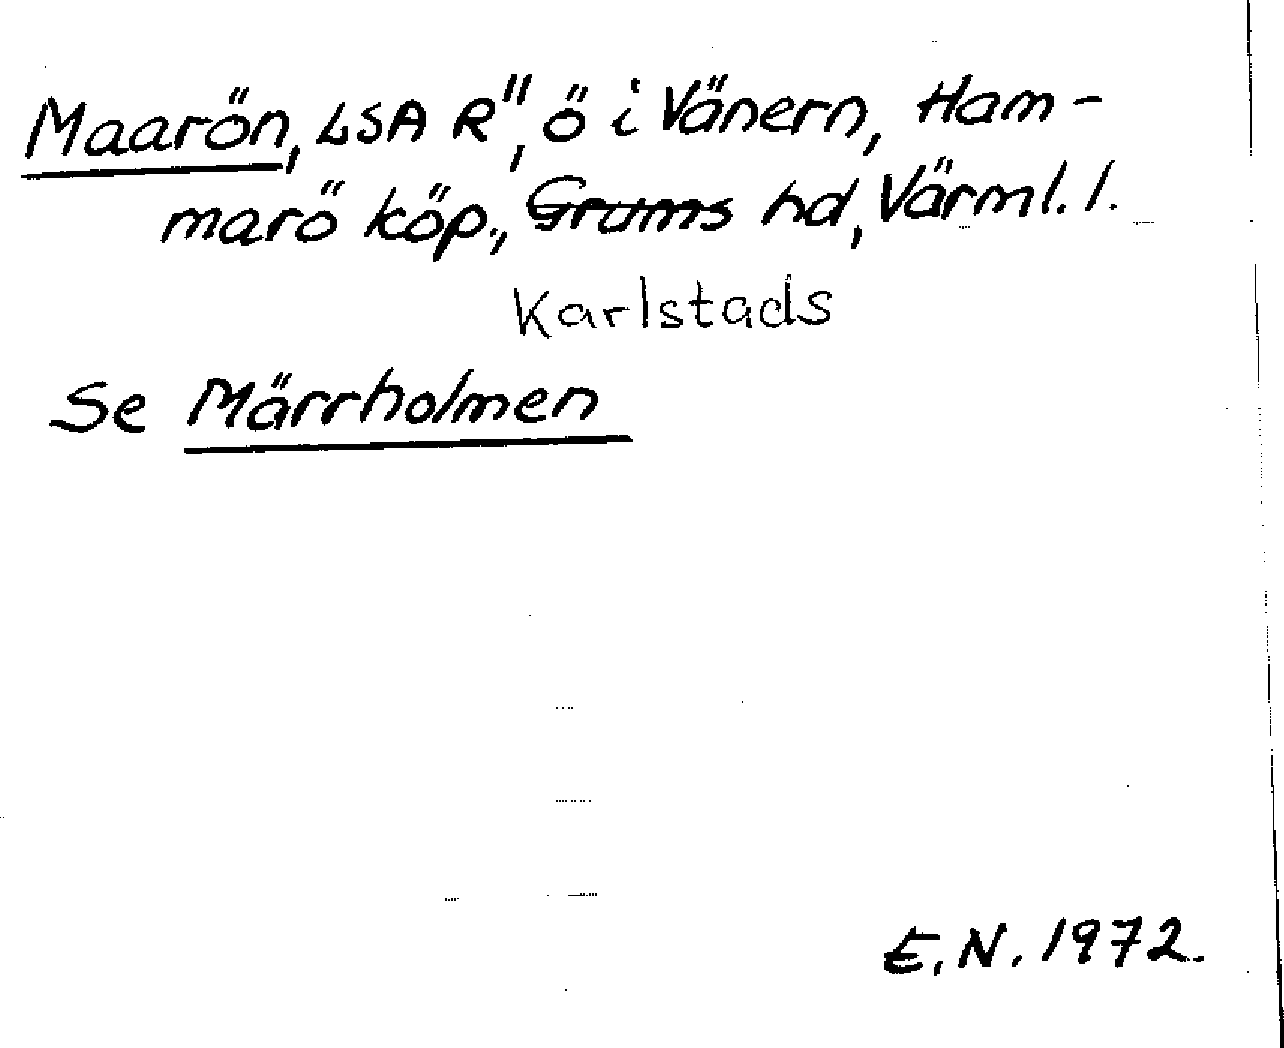 Maarön, LSA R", ö i Vänern, Ham-
marö köp., Grums hd, Värml. l.
Karlstads
Se Märrholmen
E.N. 1972.